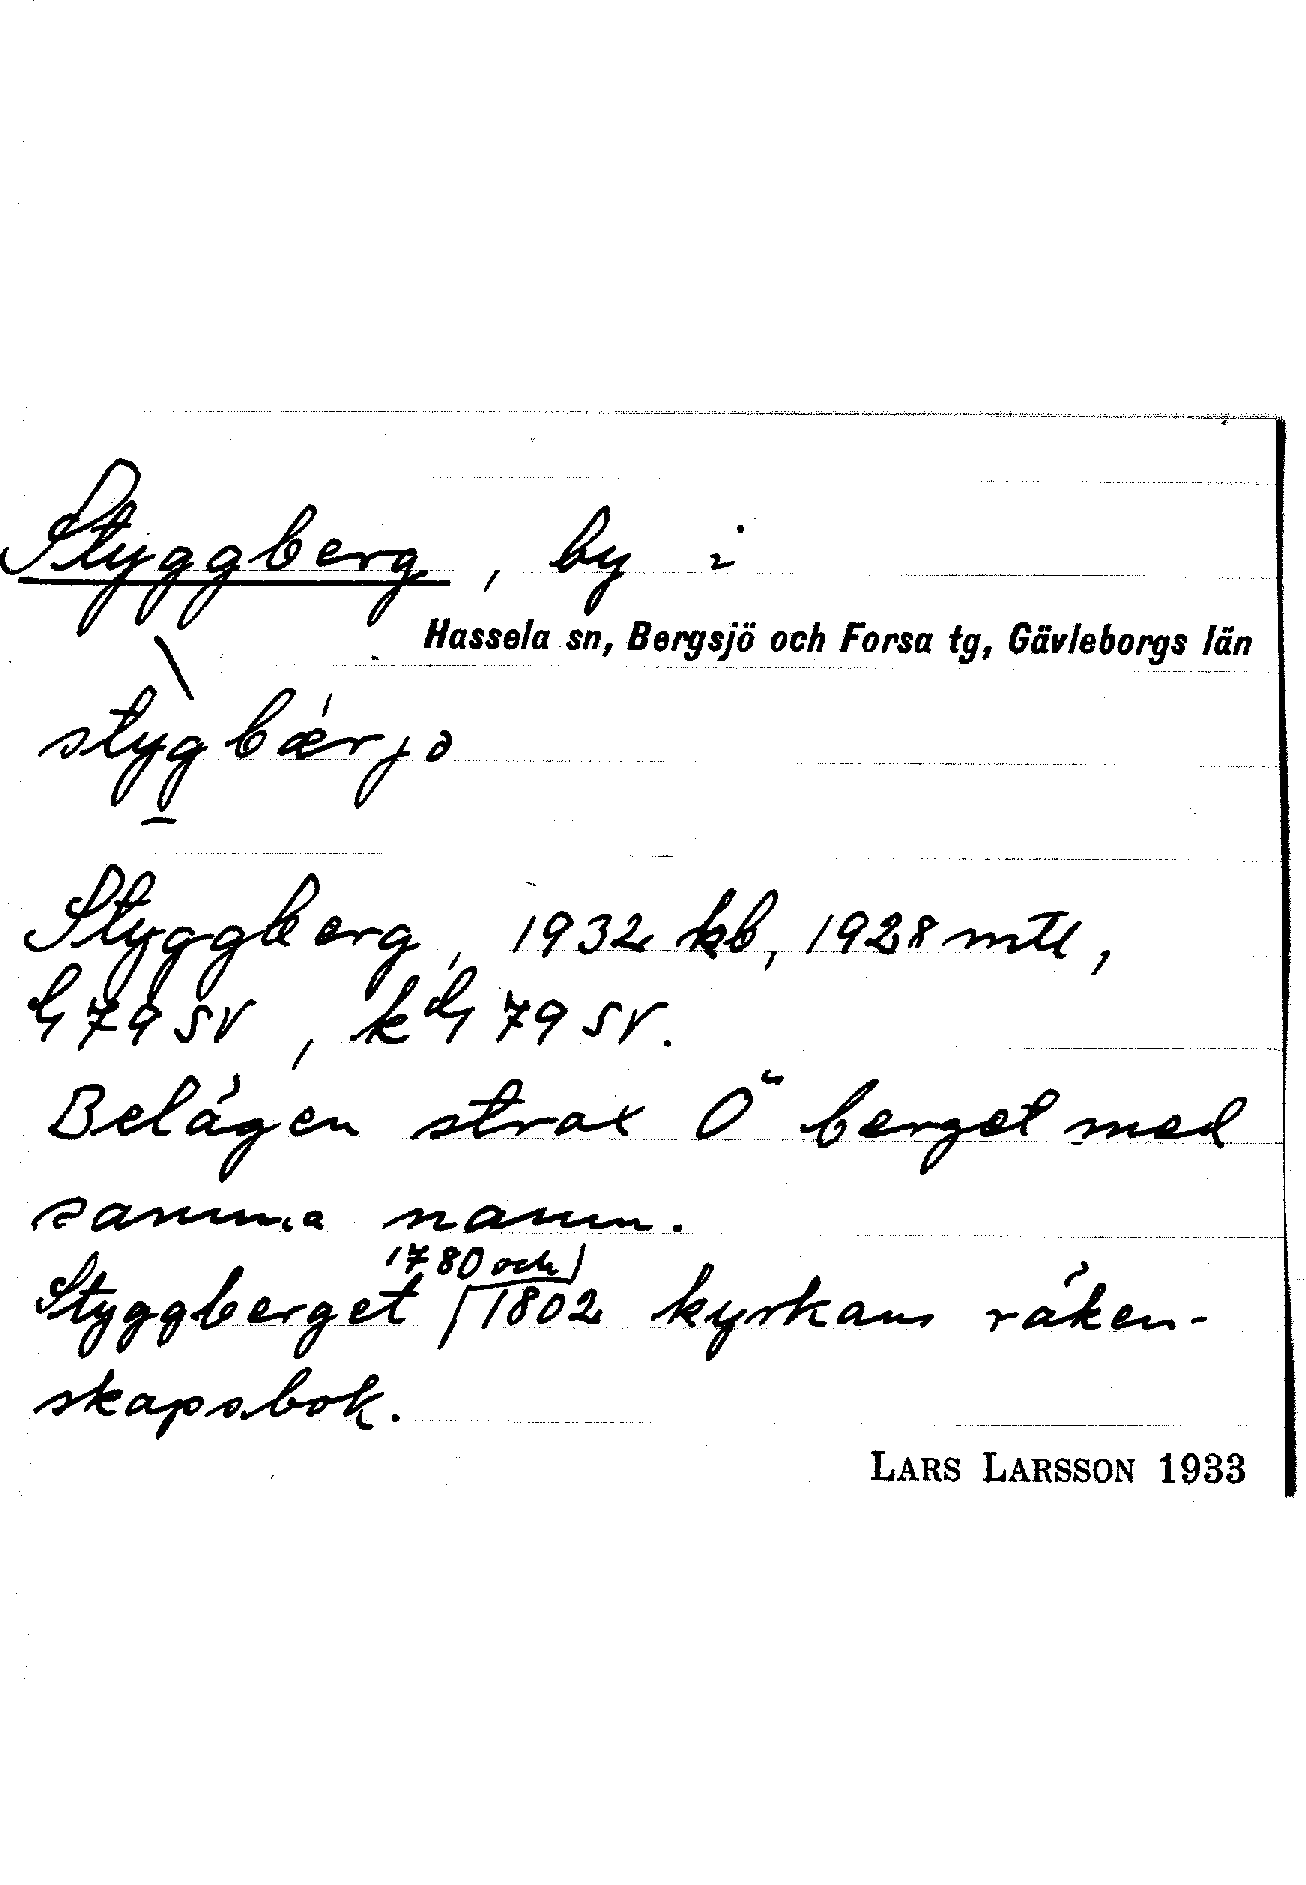 Styggberg, by i
Hassela sn, Bergsjö och Forsa tg, Gävleborgs län
stygbærjə
Styggberg, 1932 kb, 1928 mtl,
h 79 SV, kh 79 SV.
Belägen strax Ö berget med
samma namn.
1780 och
Styggberget 1802 kyrkans räken-
skapsbok.
LARS LARSSON 1933